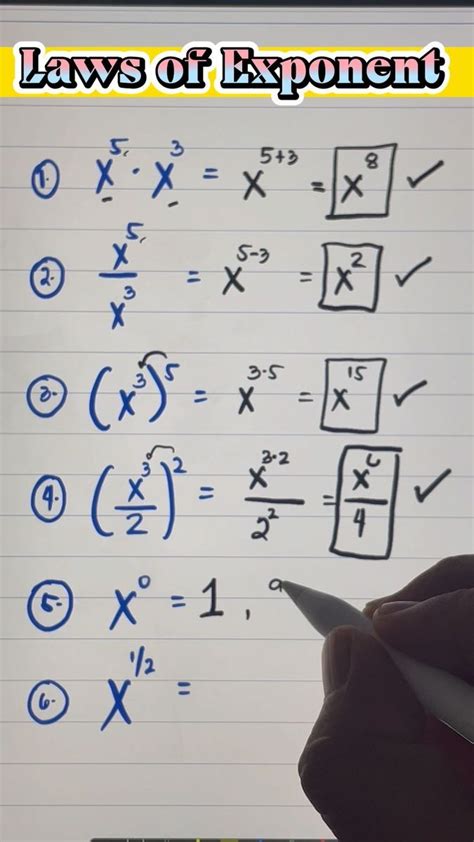 Laws of Exponent
1. x⁵ · x³ = x⁵⁺³ = x⁸ ✓
2. x⁵/x³ = x⁵⁻³ = x² ✓
3. (x³)⁵ = x³·⁵ = x¹⁵ ✓
4. (x³/2)² = x³·²/2² = x⁶/4 ✓
5. x⁰ = 1, 9
6. x¹/² =